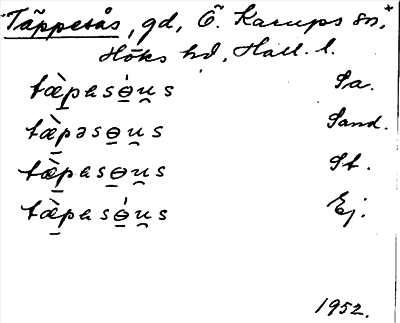 Täppesås, gd, Ö. Karups sn,+
Höks hd, Hall. l.
tæ̀p̲asɵ̲́u̮s Sa.
tæ̀p̲əsɵ̲u̮s Sand.
tæ̀p̲asɵ̲u̮s St.
tæ̀p̲asɵ̲́u̮s Ej.
1952.